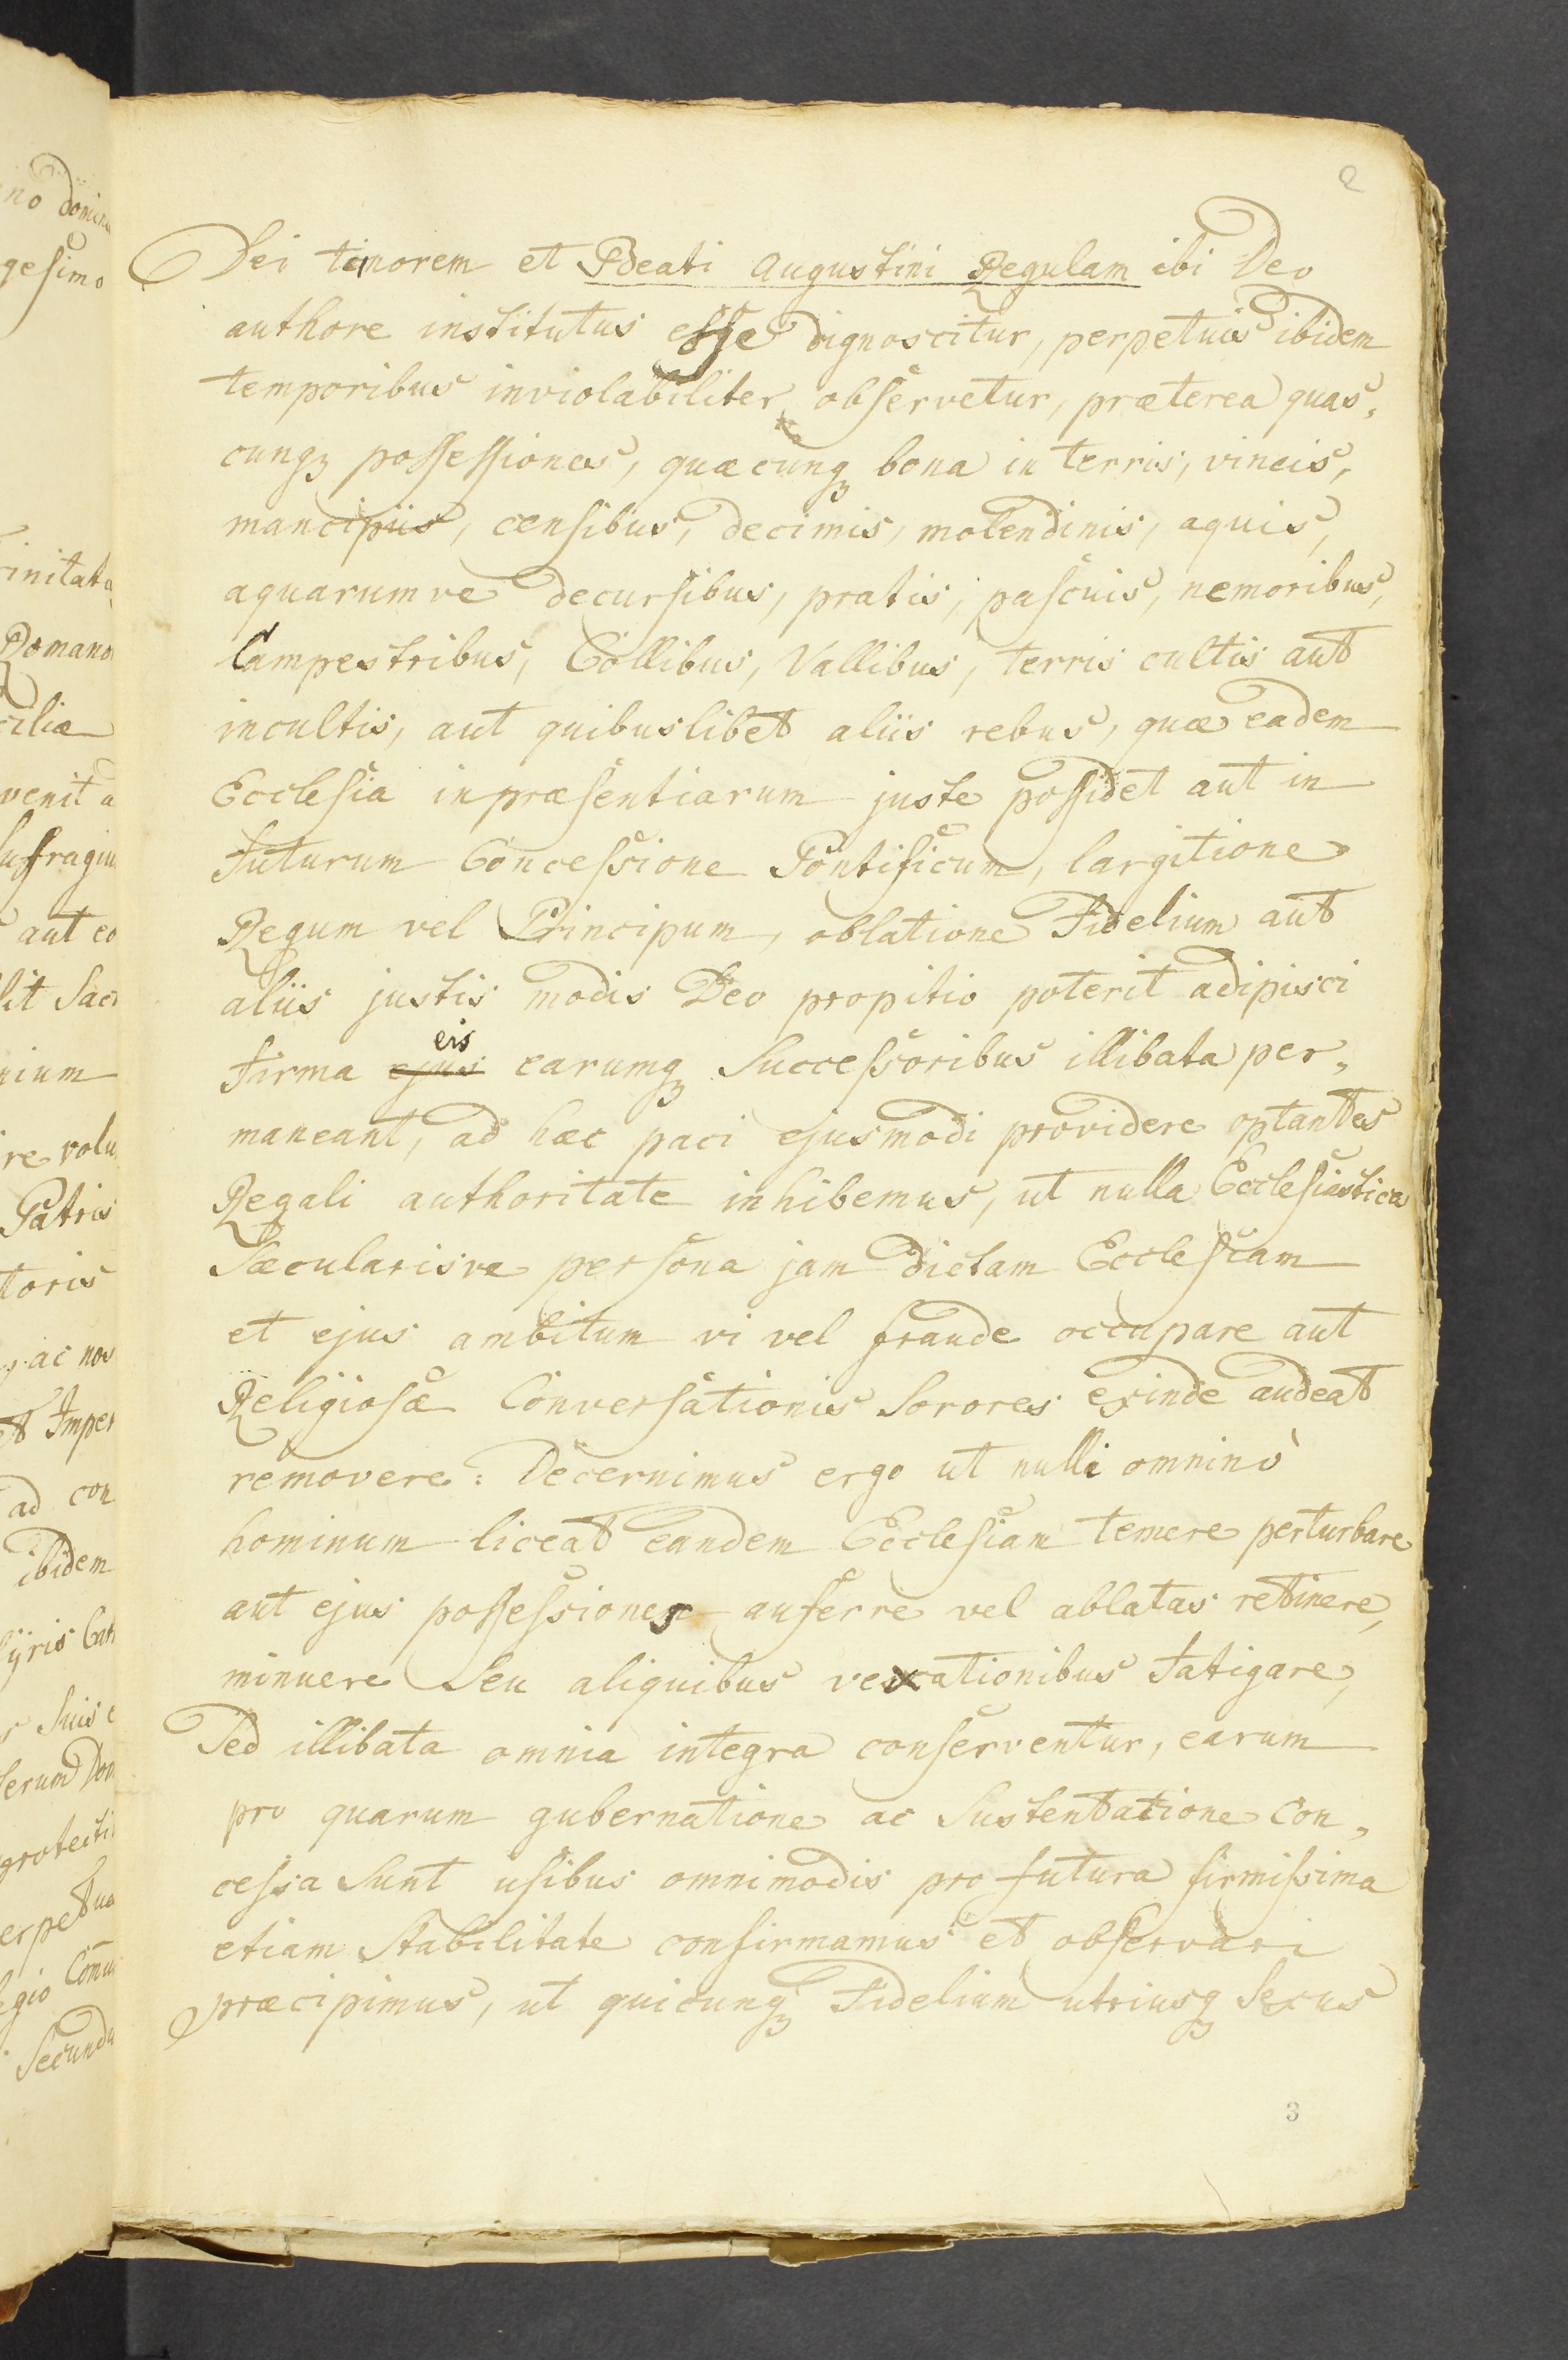 2
Dei timorem et Beati Augustini Regulam ibi Deo
authore institutus eſſe dignoscitur, perpetuis ibidem
temporibus inviolabiliter obſervetur, præterea quas,
cunqꝫ poſſeſſiones, quæcunqꝫ bona in terris, vineis,
mancipiis, cenſibus, decimis, molendinis, aquis,
aquarumve decurſibus, pratis, paſcuis, nemoribus,
Campestribus, Collibus, Vallibus, terris cultis aut
incultis, aut quibuslibet aliis rebus, quæ eadem
Eccleſia inpræſentiarum juste poſſidet aut in
futurum Conceſsione Pontificum, largitione
Regum vel Principum, oblatione Fidelium aut
aliis justis modis Deo propitio poterit adipisci
eis
firma ejus earumqꝫ Succeſsoribus illibata per,
maneant, ad hæc paci ejusmodi providere optantes
Regali authoritate inhibemus, ut nulla Eccleſiastica
Sæcularisve perſona jam dictam Eccleſiam
et ejus ambitum vi vel fraude occupare aut
Religioſæ Converſationis Sorores exinde audeat
removere: Decernimus ergo ut nulli omninò
hominum liceat eandem Eccleſiam temere perturbare
aut ejus poſſeſsiones auferre vel ablatas retinere,
minuere Seu aliquibus vexationibus fatigare,
Sed illibata omnia integra conſerventur, earum
pro quarum gubernatione ac Sustentatione con,
ceſsa Sunt uſibus omnimodis pro futura firmiſsima
etiam Stabilitate confirmamus et obſervari
præcipimus, ut quicunqꝫ Fidelium utriusqꝫ Sexus
3